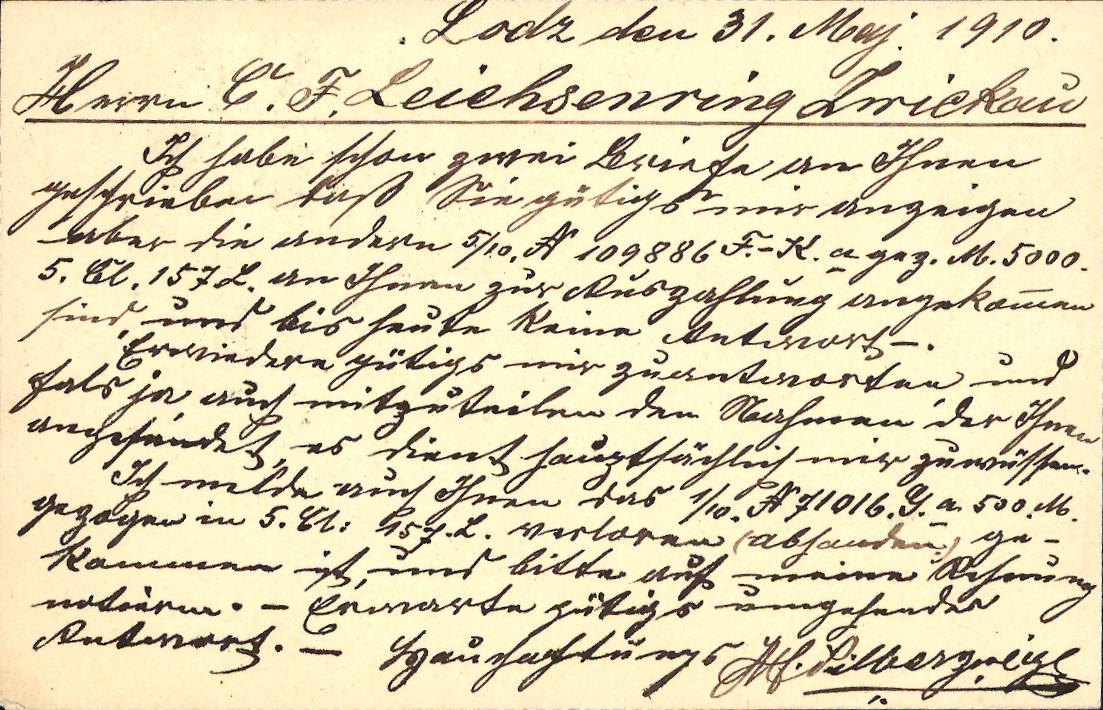 Lodz den 31. Maj. 1910.
Herrn C. F. Leichsenring Zwickau
Ich habe schon zwei Briefe an Ihnen
geschrieben daß Sie gütigs mir anzeigen
aber die andern 5/10. № 109886 F.-K. a gez. M. 5000.
5. Cl. 157 L. an Ihnen zur Auszahlung angekom̅en
sind, und bis heute keine Antwort –.
Erwiedere gütigs mir zuantworten und
fals ja auch mitzuteilen den Nahmen der Ihnen
angesendet, es dient hauptsächlich mir zuwüssen.
Ich melde auch Ihnen das 1/10. № 71016. Y. a. 500. M.
gezogen in 5. Cl: 157. L. verloren (abhanden) ge-
kommen ist, und bitte auf meine Rehnung
notieren. – Erwarte gütigs umgehender
Antwort. – Silberzweig